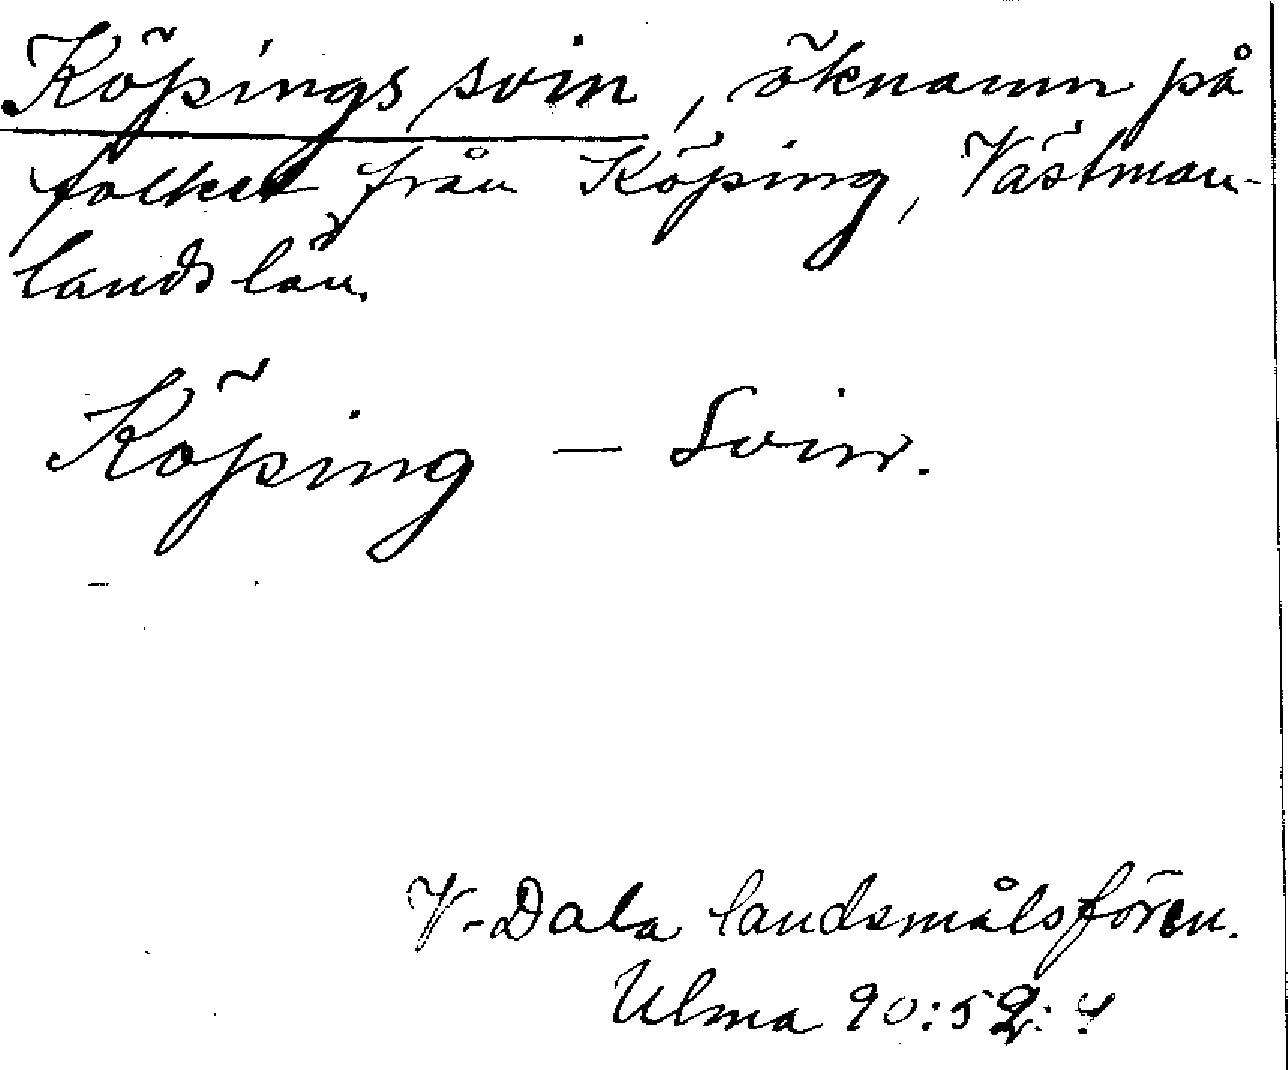 Köpings svin, öknamn på
folket från Köping, Västman-
lands län.
Köping – Svin.
V-Dala landsmålsfören.
Ulma 90:52:4